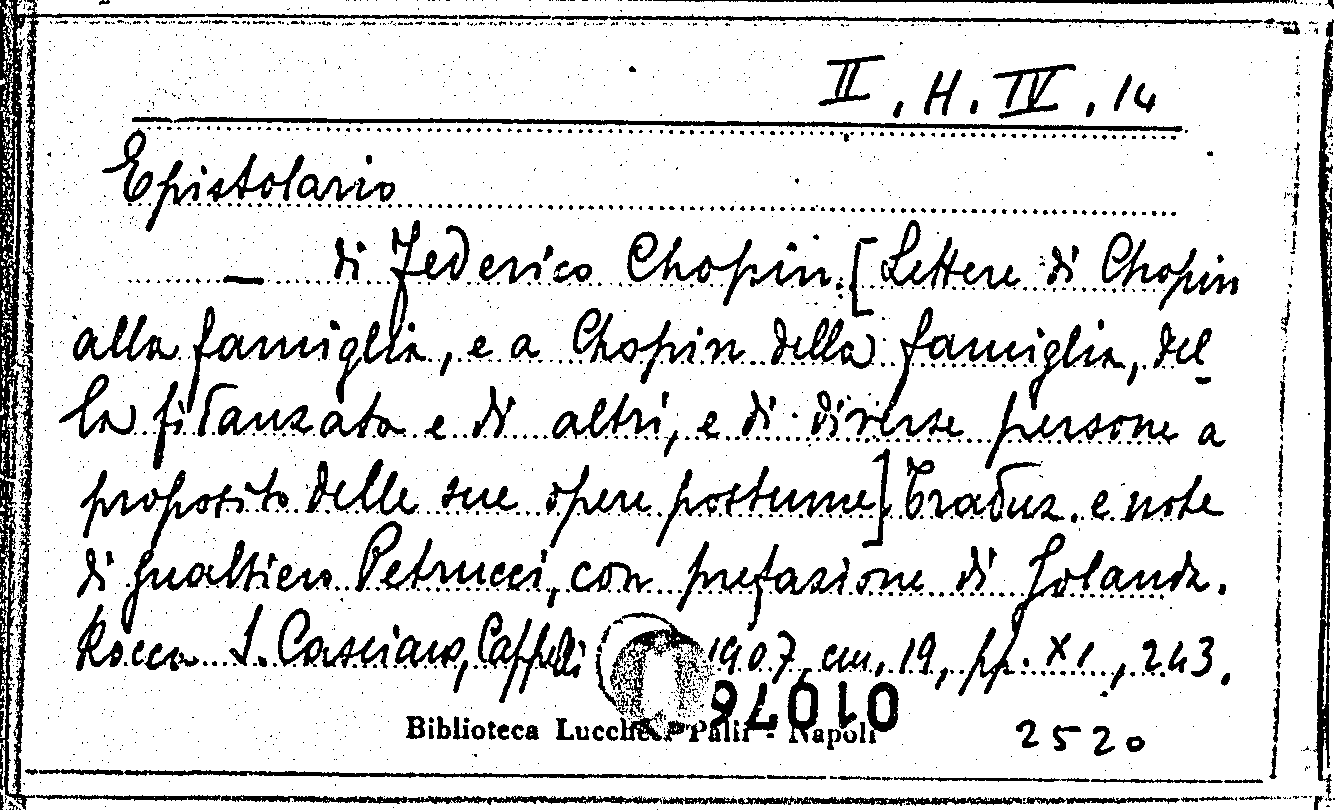 II. H. IV. 14
Epistolario
— di Federico Chopin. [Lettere di Chopin
alla famiglia, e a Chopin della famiglia, del_
la fidanzata e di altri, e di diverse persone a
proposito delle sue opere postume]. Traduz. e note
di Gualtiero Petrucci, con prefazione di Jolanda.
Rocca S. Casciano, Cappelli 1907, cm. 19, pp. XI, 243.
01078
Biblioteca Lucchesi Palli - Napoli
2520